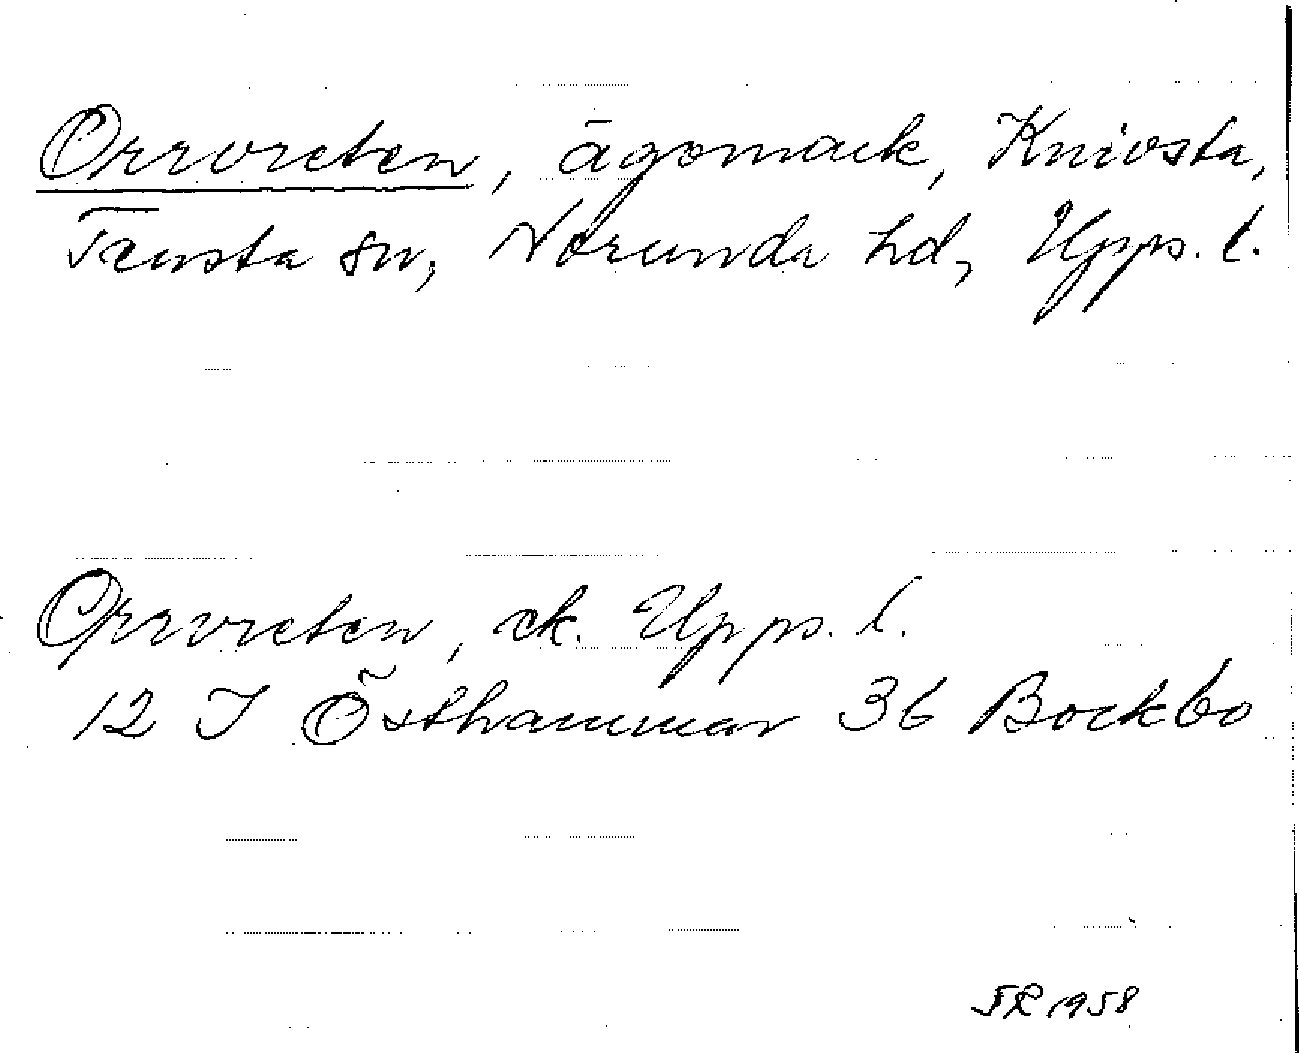 Orrvreten, ägomark, Knivsta,
Tensta sn, Norunda hd, Upps. l.
Orrvreten, ek. Upps. l.
12 I Östhammar 3b Bockbo
SR 1958